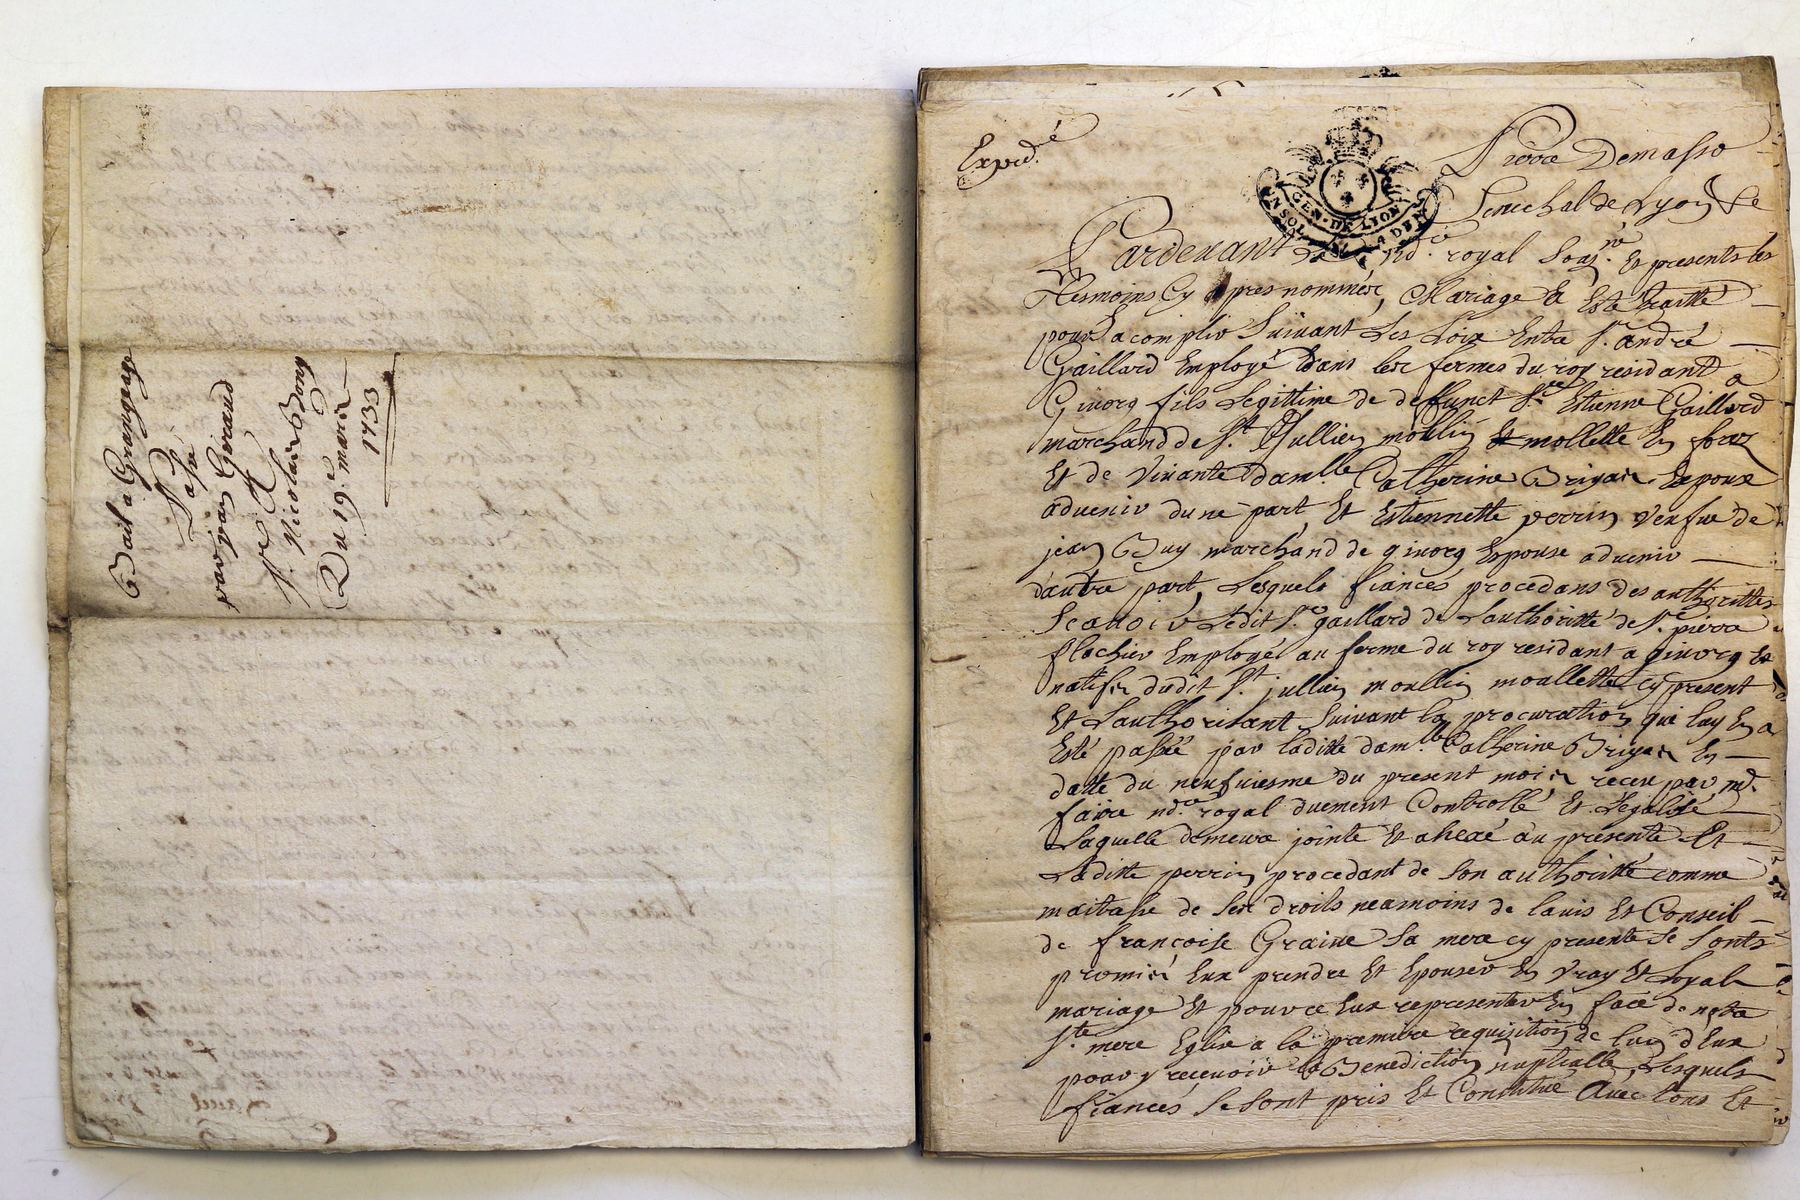 Bail a Grangeage
Passé
par jean Giraud
A
Sr. Nicolas Bony
Du 19e. mars
1733
Expedié
Pierre Demasso
Senechal de Lyon
GEN. DE LYON
Pardevant le nore. royal Sousné. Et presents les
tesmoins Cy apres nommés, Mariage a Esté traitté
pour sacomplir Suivant Les Loix Entre Sr. andré
Gaillard Employé dans les fermes du roy residant a
Givorg fils Legittime de deffunct Sr. Estienne Gaillard
marchand de St. Jullien mollin mollette En forez
Et de vivante damlle. Catherine Brigas Espoux
advenir dune part, Et Estiennette perrin venfue de
jean Buy marchand de givorg Espouse advenir
dautre part, Lesquels fiances procedans des authorittés
Scavoir Ledit Sr. gaillard de Lauthoritté de Sr. pierre
flachier Employé au ferme du roy residant a givorg Et
natifs dudit St. jullien moullin moullette cy present
Et Lauthorisant Suivant la procuration qui luy En a
Esté passée par laditte damlle. Catherine Brigas En
datte du neufviesme du present mois receue par me.
faure nore. royal duement Controllé Et Legalisé
Laquelle demeure jointe Et anexé au presente Et
Laditte perrin procedant de Son authoritté comme
maitresse de ses droits neamoins de lavis Et Conseil
de françoise Graine Sa mere cy presente Se Sonts
promis Eux prendre Et Epouser En vray Et Loyal
mariage Et pour ce Eux representer En face de notre
Ste. mere Eglise a la premiere requisition de lun dEux
pour y recevoir la Benediction nuptialle, Lesquels
fiancés Se Sont pris Et Constitué Avec tous Et